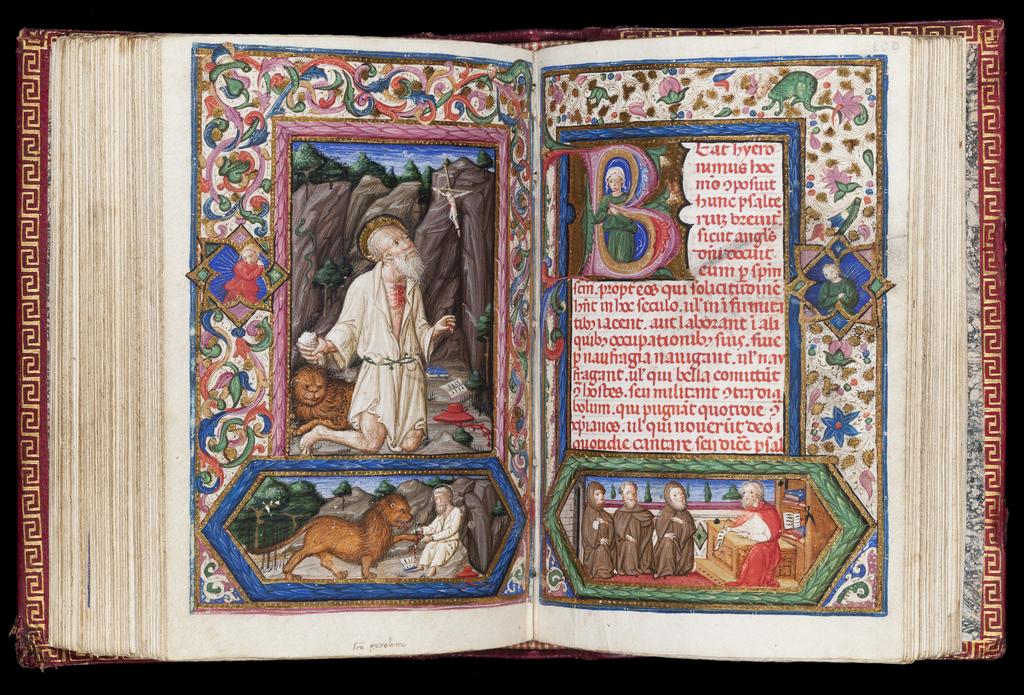 Beat hyero
nimus hoc
mō ꝯposuit
hunc psalte
riuȝ. breuit̄.
sicut angl̄s
dn̄i docuit
eum p sp̄m
sc̄m. propt̄ eos qui solicitōinē
hn̄t in hoc seculo. ul̓ in īfirmita
tibꝫ iacent. aut laborant ī ali
quibꝫ occupationibꝫ suis. siue
p naufragia nauigant. ul̓ nau
fragant. ul̓ qui bella cōmittūt
ꝯ hostes. seu militant ꝯtra dia
bolum. qui pugnāt quotidie ꝯ
xp̄ianos. ul̓ qui nouerūt deo
quotidie cantare seu dicē psal